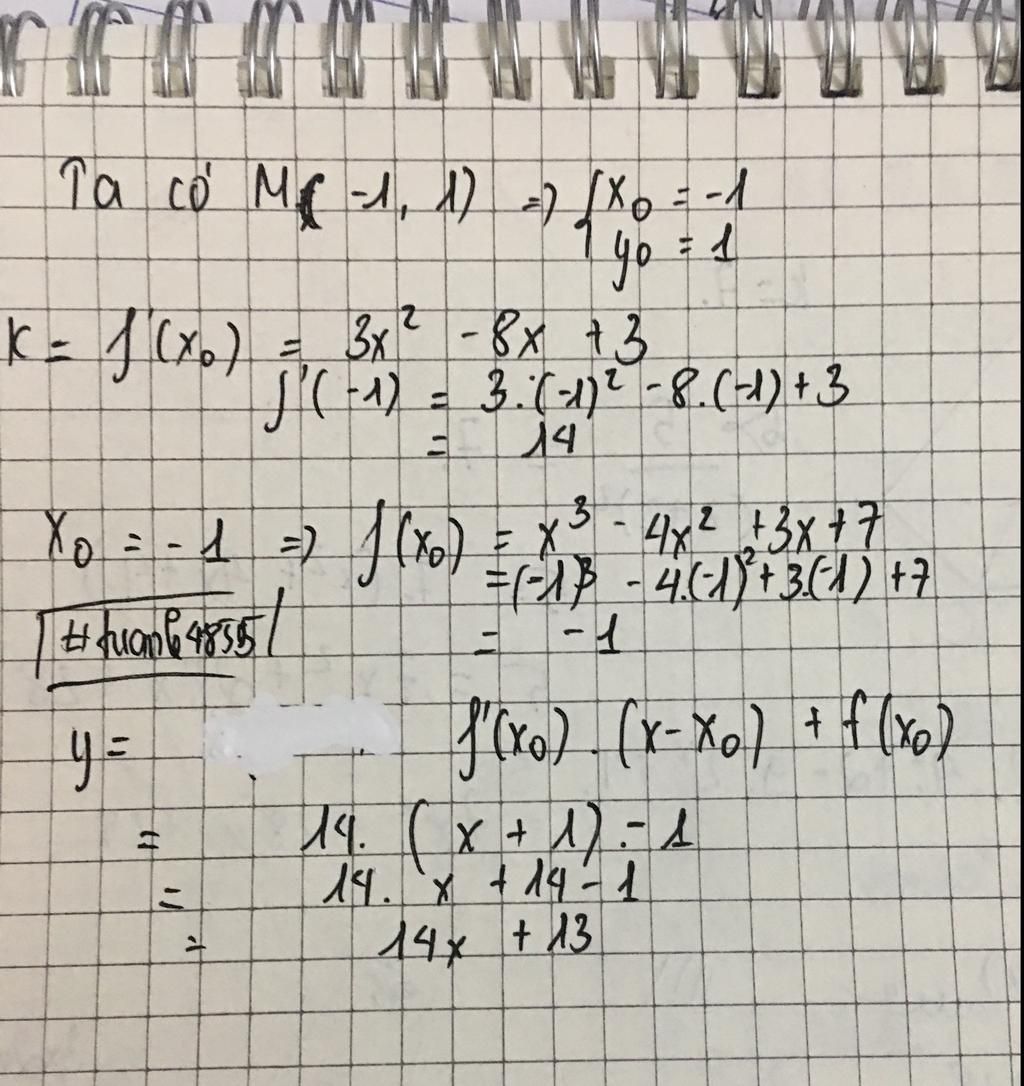 Ta có M( -1, 1) => { x₀ = -1
y₀ = 1
K = f'(x₀) = 3x² - 8x + 3
f'(-1) = 3.(-1)² - 8.(-1) + 3
= 14
x₀ = -1 => f(x₀) = x³ - 4x² + 3x + 7
= (-1)³ - 4.(-1)² + 3.(-1) + 7
= -1
y = f'(x₀) . (x - x₀) + f(x₀)
= 14. ( x + 1) - 1
= 14. x + 14 - 1
= 14x + 13